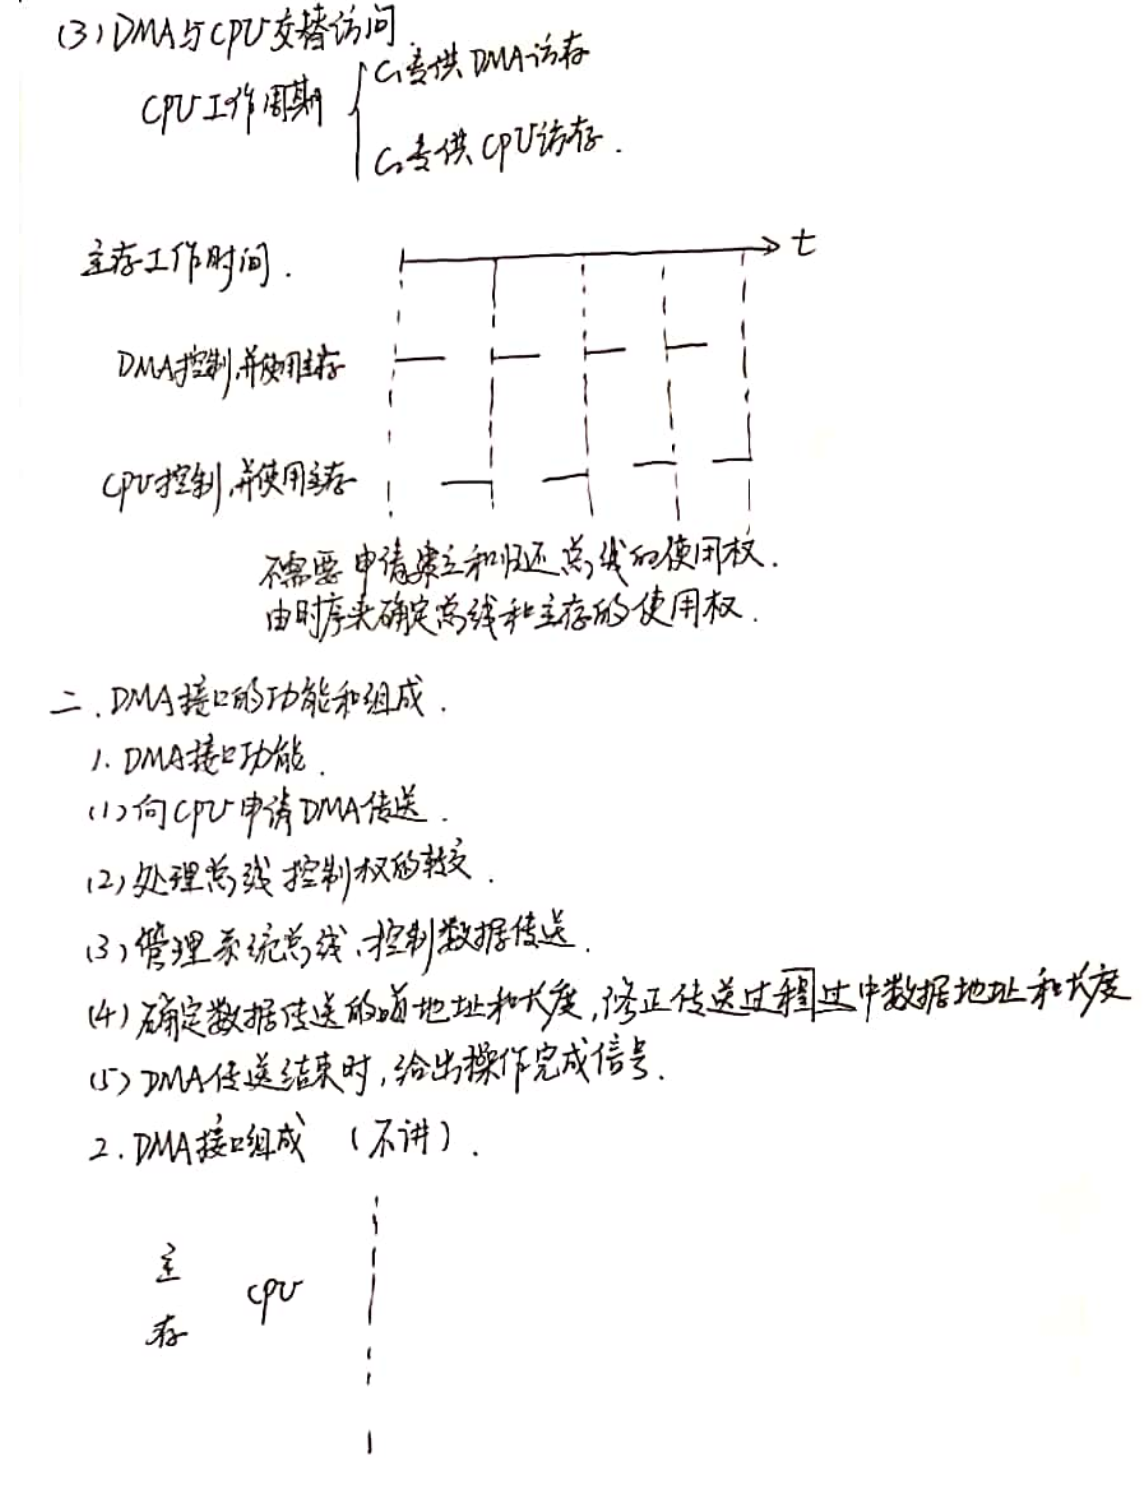 (3) DMA与CPU交替访问
CPU工作周期
C₁专供DMA访存
C₂专供CPU访存.
主存工作时间.
t
DMA控制并使用主存
CPU控制并使用主存
不需要申请建立和归还总线的使用权.
由时序来确定总线和主存的使用权.
二. DMA接口的功能和组成.
1. DMA接口功能.
(1) 向CPU申请DMA传送.
(2) 处理总线控制权的转交.
(3) 管理系统总线、控制数据传送.
(4) 确定数据传送的首地址和长度,修正传送过程过中数据地址和长度
(5) DMA传送结束时,给出操作完成信号.
2. DMA接口组成 (不讲).
主存
CPU